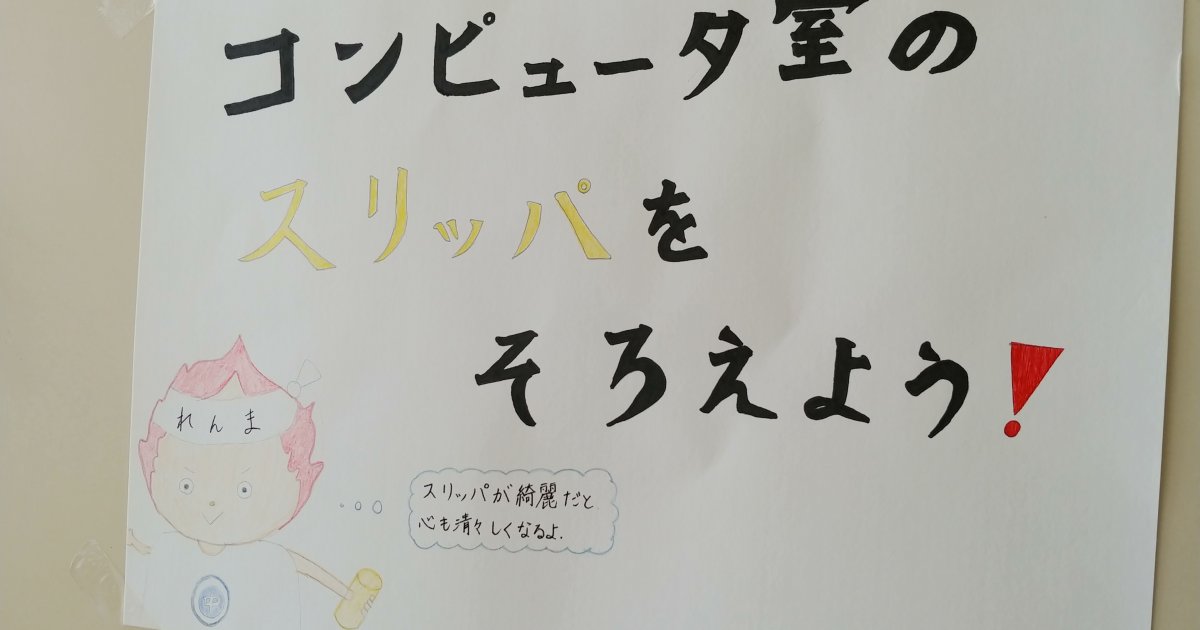 コンピュータ室の
スリッパを
そろえよう!
れんま
スリッパが綺麗だと
心も清々しくなるよ.
中